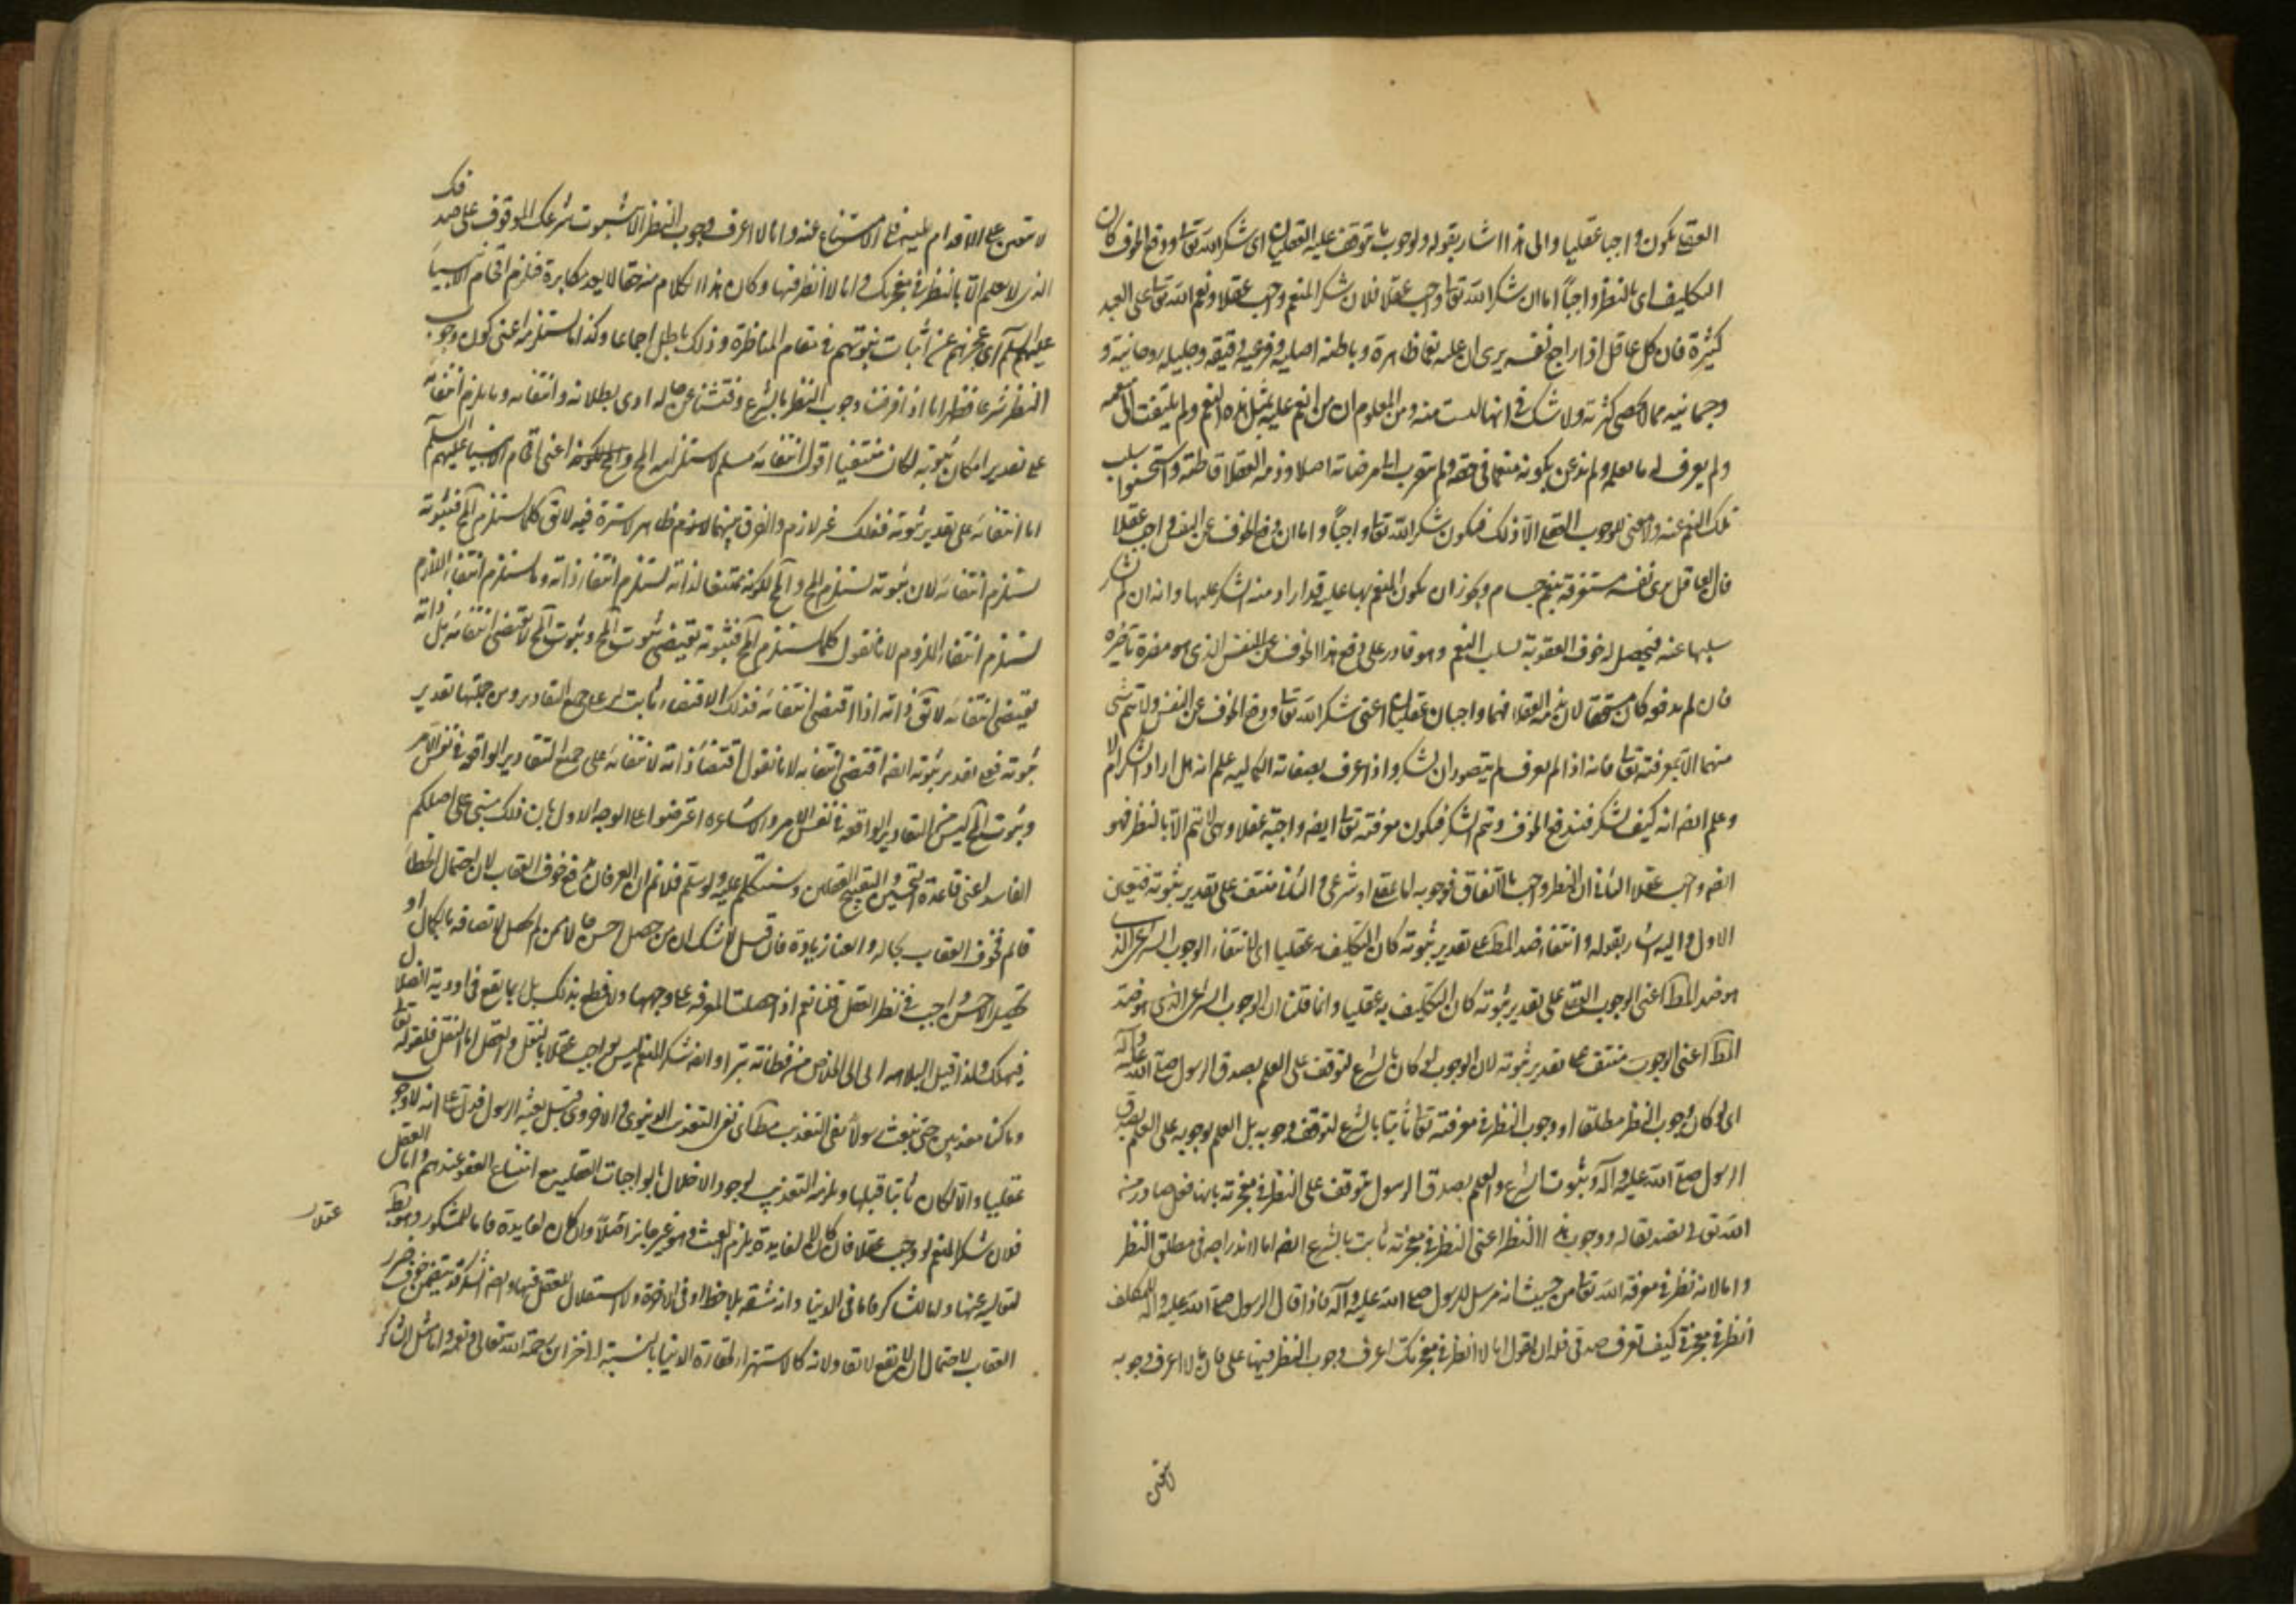 العقلي يكون واجبا عقليا والى هذا اشار بقوله ولوجوب ما توقف عليه العقليان اى شكر الله تعا ودفع الخوف كان
التكليف اى بالنظر واجباً اما ان شكر الله تعا واجب عقلا فلان شكر المنعم واجب عقلا ونعم الله تعا على العبد
كثيرة فان كل عاقل اذا راجع نفسه يرى ان عليه نعما ظاهرة وباطنه اصليه وفرعيه دقيقه وجليله روحانية و
وجسمانيه مما لا تحصى كثرته ولا شك فى انها ليست منه ومن المعلوم ان من انعم عليه بمثل هذه النعم ولم يلتفت الى منعمه
ولم يعرف له ما يعلم ولم يذعن بكونه منعما فى حقه ولم يتقرب الى مرضاته اصلا وذمه العقلا قاطبة واستحسنوا سلب
تلك النعم عنه ولا معنى للوجوب العقلى الا ذلك فيكون شكر الله تعا واجباً واما ان دفع الخوف عن النفس واجب عقلا
فان العاقل يرى نفسه مستغرقة بنعم جسام ويجوز ان يكون المنعم بها عليه قد اراد منه الشكر عليها وانه ان لم يشكر
سلبها عنه فيحصل له خوف العقوبة بسلب النعم وهو قادر على دفع هذا الخوف عن النفس الذى هو مضرة ناجزة
فان لم يدفعه كان مستحقا لان يذمه العقلا فهما واجبان عقليان اعنى شكر الله تعا ودفع الخوف عن النفس ولا يتم شى
منهما الا بمعرفته تعا فانه اذا لم يعرف لم يتصور ان يشكر واذا عرف بصفاته الكماليه علم انه هل اراد الشكر ام لا
وعلم ايضا انه كيف يشكر فيندفع الخوف ويتم الشكر فيكون معرفته تعا ايضه واجبة عقلا وهى لا تتم الا بالنظر فهو
ايضه واجب عقلا الثانى ان النظر واجب بالاتفاق فوجوبه اما عقلى او شرعى والثانى منتف على تقدير ثبوته فتعين
الاول واليه اشار بقوله وانتفاء ضد المط على تقدير ثبوته كان التكليف به عقليا اى لانتفاء الوجوب الشرعى الذى
هو ضد المط اعنى الوجوب العقلى على تقدير ثبوته كان التكليف به عقليا وانما قلنا ان الوجوب الشرعى الذى هو ضد
المط اعنى الوجوب منتف على تقدير ثبوته لان الوجوب لو كان بالشرع لتوقف على العلم بصدق الرسول صلى الله عليه وآله
اى لو كان وجوب النظر مطلقا او وجوب النظر فى معرفته تعا ثابتا بالشرع لتوقف وجوبه بل العلم بوجوبه على العلم بصدق
الرسول صلى الله عليه وآله وثبوت الشرع والعلم بصدق الرسول يتوقف على النظر فى معجزته بانها فعل صادر من
الله تعا لتصديقه له ووجوب هذا النظر اعنى النظر فى معجزته ثابت بالشرع ايضه اما لاندراجه فى مطلق النظر
واما لانه نظر فى معرفة الله تعا من حيث انه مرسل للرسول صلى الله عليه وآله فاذا قال الرسول صلى الله عليه وآله للمكلف
انظر فى معجزتى كيف تعرف صدقى فله ان يقول انا لا انظر فى معجزتك اعرف وجوب النظر فيها على فان ما لا اعرف وجوبه
لا يتعين على الاقدام عليه فلى الامتناع عنه وانا لا اعرف وجوب النظر الا بثبوت شرعك الموقوف على صدقك
الذى لا يعلم الا بالنظر فى معجزتك وانا لا انظر فيها وكان هذا الكلام منه حقا لا يعد مكابرة فلزم افحام الانبياء
عليهم السلام اى عجزهم عن اثبات نبوتهم فى مقام المناظرة وذلك باطل اجماعا وكذا ما يستلزمه اعنى كون وجوب
النظر شرعا فظهر انا اذا فرضنا وجوب النظر بالشرع وفتشنا عن حاله ادى بطلانه وانتفائه وما يلزم انتفائه
على تقدير امكان ثبوته لكان منتفيا اقول انتفائه مسلم لاستلزامه المح اعنى افحام الانبياء عليهم السلام
اما انتفائه على تقدير ثبوته فذلك غير لازم والفرق بينهما ظاهر لا سترة فيه لا يق كلما يستلزم المح فثبوته
يستلزم انتفائه لان ثبوته يستلزم المح والمح لكونه منتفيا لذاته يستلزم انتفاء ذاته وما يستلزم انتفاء اللازم
يستلزم انتفاء الملزوم لانا نقول كلما يستلزم المح فثبوته يقتضى ثبوت المح وثبوت المح لا يقتضى انتفائه بل ذاته
يقتضى انتفائه لا يق ذاته اذا اقتضى انتفائه فذلك الاقتضاء ثابت له على جميع التقادير ومن جملتها تقدير
ثبوته فعلى تقدير ثبوته ايضه اقتضى انتفائه لانا نقول اقتضاء ذاته لانتفائه على جميع التقادير الواقعه فى نفس الامر
وثبوت المح ليس من التقادير الواقعه فى نفس الامر والاشاعره اعترضوا على الوجه الاول بان ذلك مبنى على اصلكم
الفاسد اعنى قاعدة التحسين والتقبيح العقلين وسنتكلم عليه ولو سلم فلا نم ان العرفان يدفع خوف العقاب لان احتمال الخطا
قائم فخوف العقاب بحاله والعناء زيادة فان قيل لا شك ان من حصل احسن حالا ممن لم يحصل لاتصافه بالكمال او
تحصيل الاحسن واجب فى نظر العقل قلنا نعم اذا حصلت المعرفه على وجهها ولا قطع بذلك بل ربما يقع فى اودية الضلال
فيهلك ولذا قيل البلاهة ادنى الى الخلاص من فطانة بتراء وايضه شكر المنعم ليس بواجب عقلا بالنقل والعقل اما النقل فلقوله تعا
وما كنا معذبين حتى نبعث رسولا نفى التعذيب مط اى نفى التعذيب الدنيوى والاخروى قبل بعثه الرسول فدل على انه لا وجوب
عقليا والا لكان ثابتا قبلها ويلزمه التعذيب لوجود الاخلال بالواجبات العقلية مع امتناع العفو عندهم واما العقل
فلان شكر المنعم لو وجب عقلا فان كان لا لفايدة يلزم العبث وهو غير جايز اصلا وان كان لفايدة فاما للمشكور وهو بط
عقلا
لتعاليه عنها واما للشاكر فاما فى الدنيا وانه مشقه بلا حظ او فى الاخرة ولا استقلال للعقل فيها وايضه الشكر قد يتضمن خوف ضرر
العقاب لاحتمال ان لا يقع لائقا ولانه كالاستهزاء لحقارة الدنيا بالنسبة الى خزاين رحمة الله تعالى ونعمه وانما مثل الشاكر